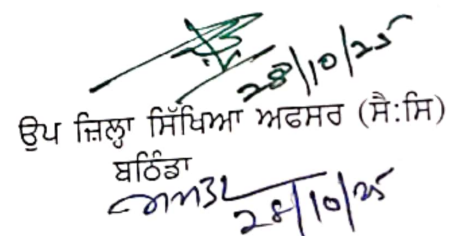 28/10/25
ਉਪ ਜ਼ਿਲ੍ਹਾ ਸਿੱਖਿਆ ਅਫਸਰ (ਸੈ:ਸਿ)
ਬਠਿੰਡਾ
28/10/25